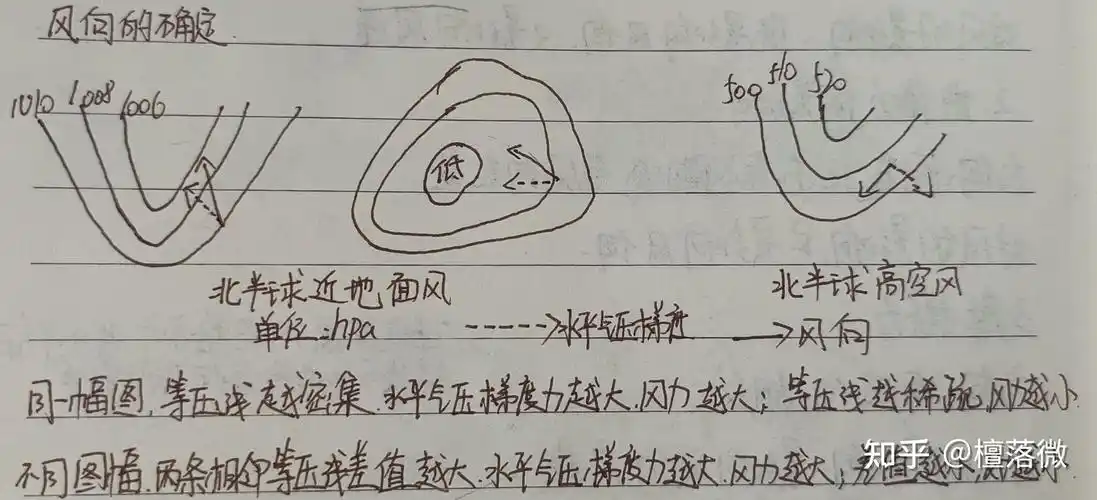 风向的确定
1010 1008 1006
低
500 510 520
北半球近地面风
北半球高空风
单位:hpa
水平气压梯度
风向
同一幅图,等压线越密集.水平气压梯度力越大.风力越大;等压线越稀疏,风力越小
不同图幅.两条相邻等压线差值越大.水平气压梯度力越大.风力越大;差值越小,风越小
知乎 @檀落微